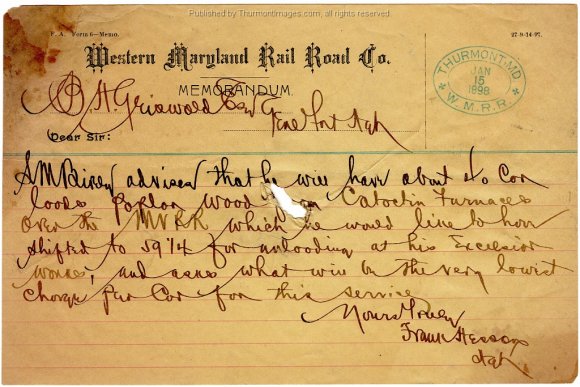 Published by ThurmontImages.com, all rights reserved
F. A. Form 6—Memo.
27-9-14-97.
Western Maryland Rail Road Co.
MEMORANDUM.
THURMONT, MD
JAN
15
1898
W.M.R.R.
B H Griswold Esq Genl Frt Agt
Dear Sir:
S M Birely advises that he will have about 40 Car
loads poplar wood Catoctin Furnaces
over the MVRR which he would like to have
shifted to for unloading at his Excelsior
works, and asks what will be the very lowest
charge per Car for this service
Yours truly
Frank Hesson
Agt